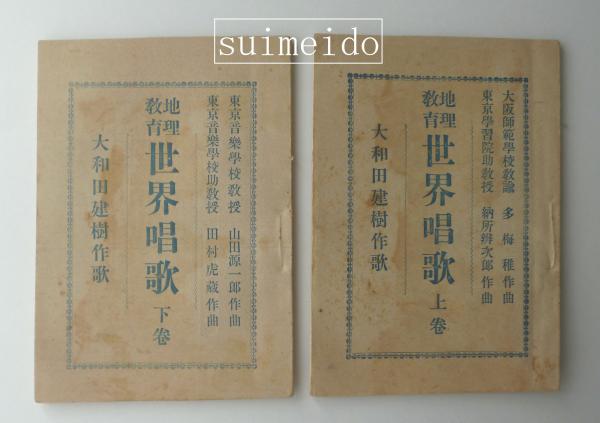 suimeido
大阪師範學校教諭 多梅稚作曲
東京學習院助教授 納所辨次郎作曲
地理
教育
世界唱歌 上卷
大和田建樹作歌
東京音樂學校教授 山田源一郎作曲
東京音樂學校助教授 田村虎藏作曲
地理
教育
世界唱歌 下卷
大和田建樹作歌